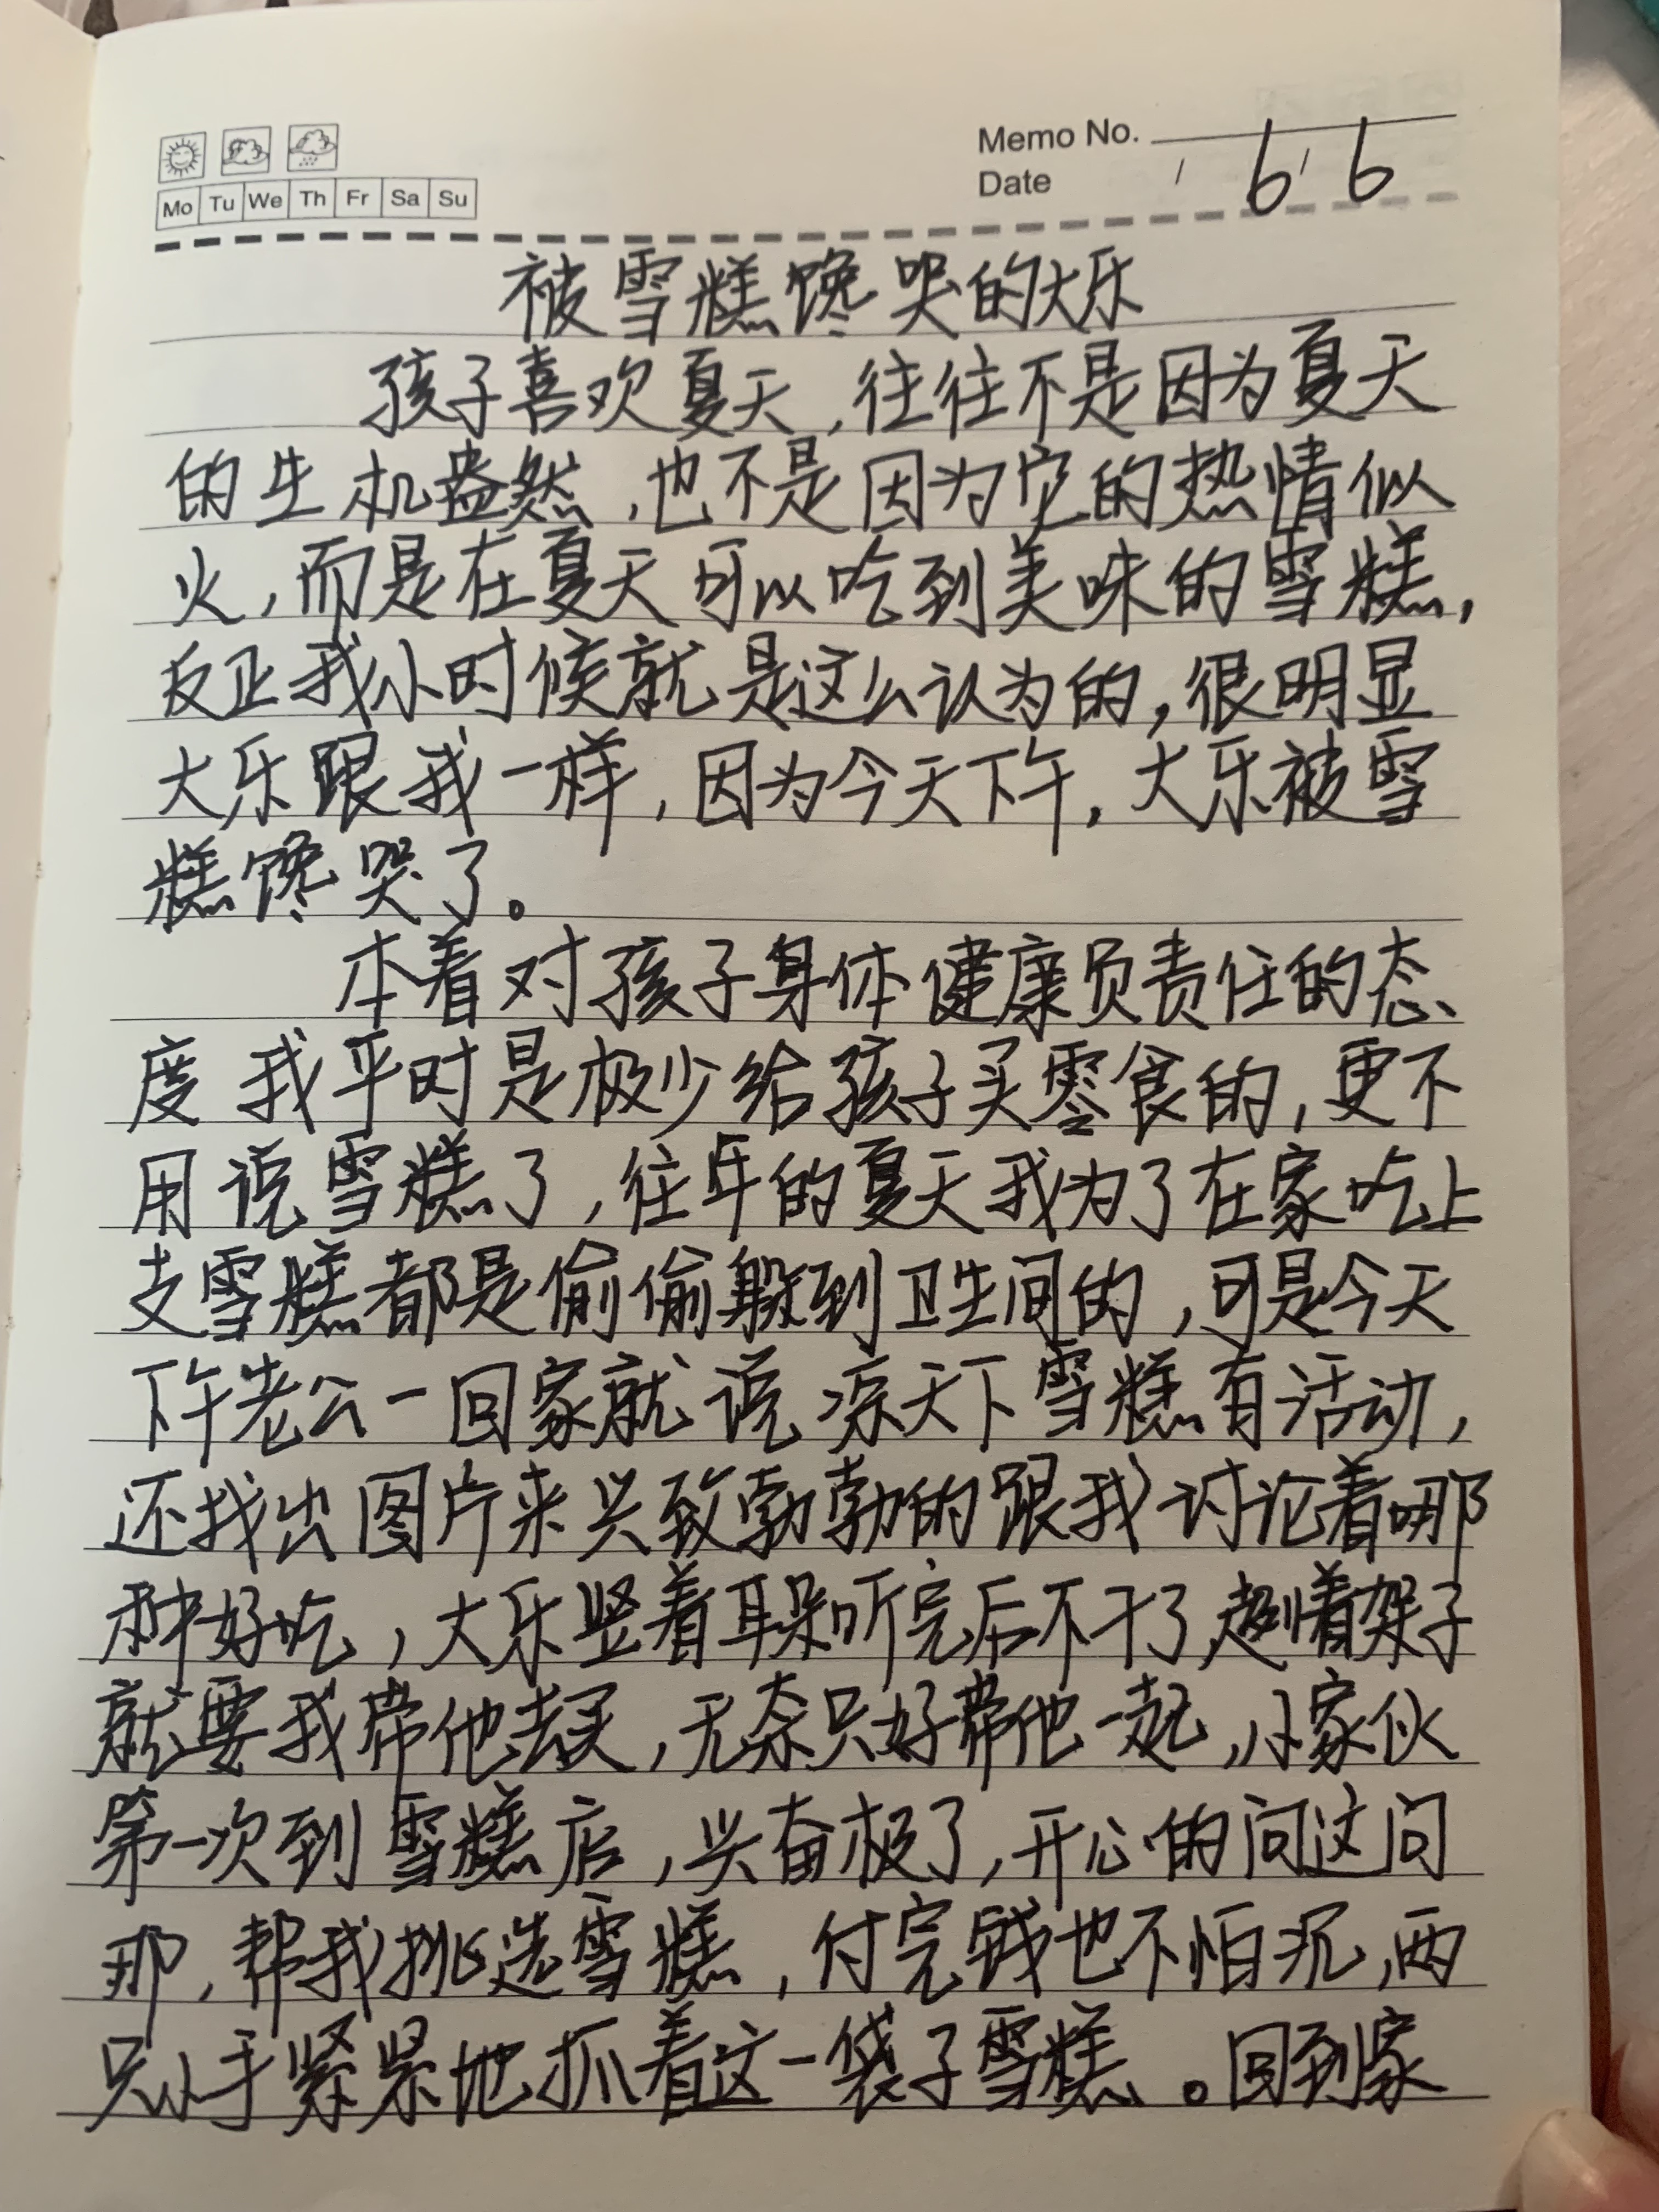 Memo No.
Mo Tu We Th Fr Sa Su
Date / 6 / 6
被雪糕馋哭的大乐
孩子喜欢夏天,往往不是因为夏天
的生机盎然,也不是因为它的热情似
火,而是在夏天可以吃到美味的雪糕,
反正我小时候就是这么认为的,很明显
大乐跟我一样,因为今天下午,大乐被雪
糕馋哭了。
本着对孩子身体健康负责任的态
度 我平时是极少给孩子买零食的,更不
用说雪糕了,往年的夏天我为了在家吃上
支雪糕都是偷偷躲到卫生间的,可是今天
下午老公一回家就说凉天下雪糕有活动,
还找出图片来兴致勃勃的跟我讨论着哪
种好吃,大乐竖着耳朵听完后不干了,着架子
就要我带他去买,无奈只好带他一起,小家伙
第一次到雪糕店,兴奋极了,开心的问这问
那,帮我挑选雪糕,付完钱也不怕沉,两
只小手紧紧地抓着这一袋子雪糕。回到家